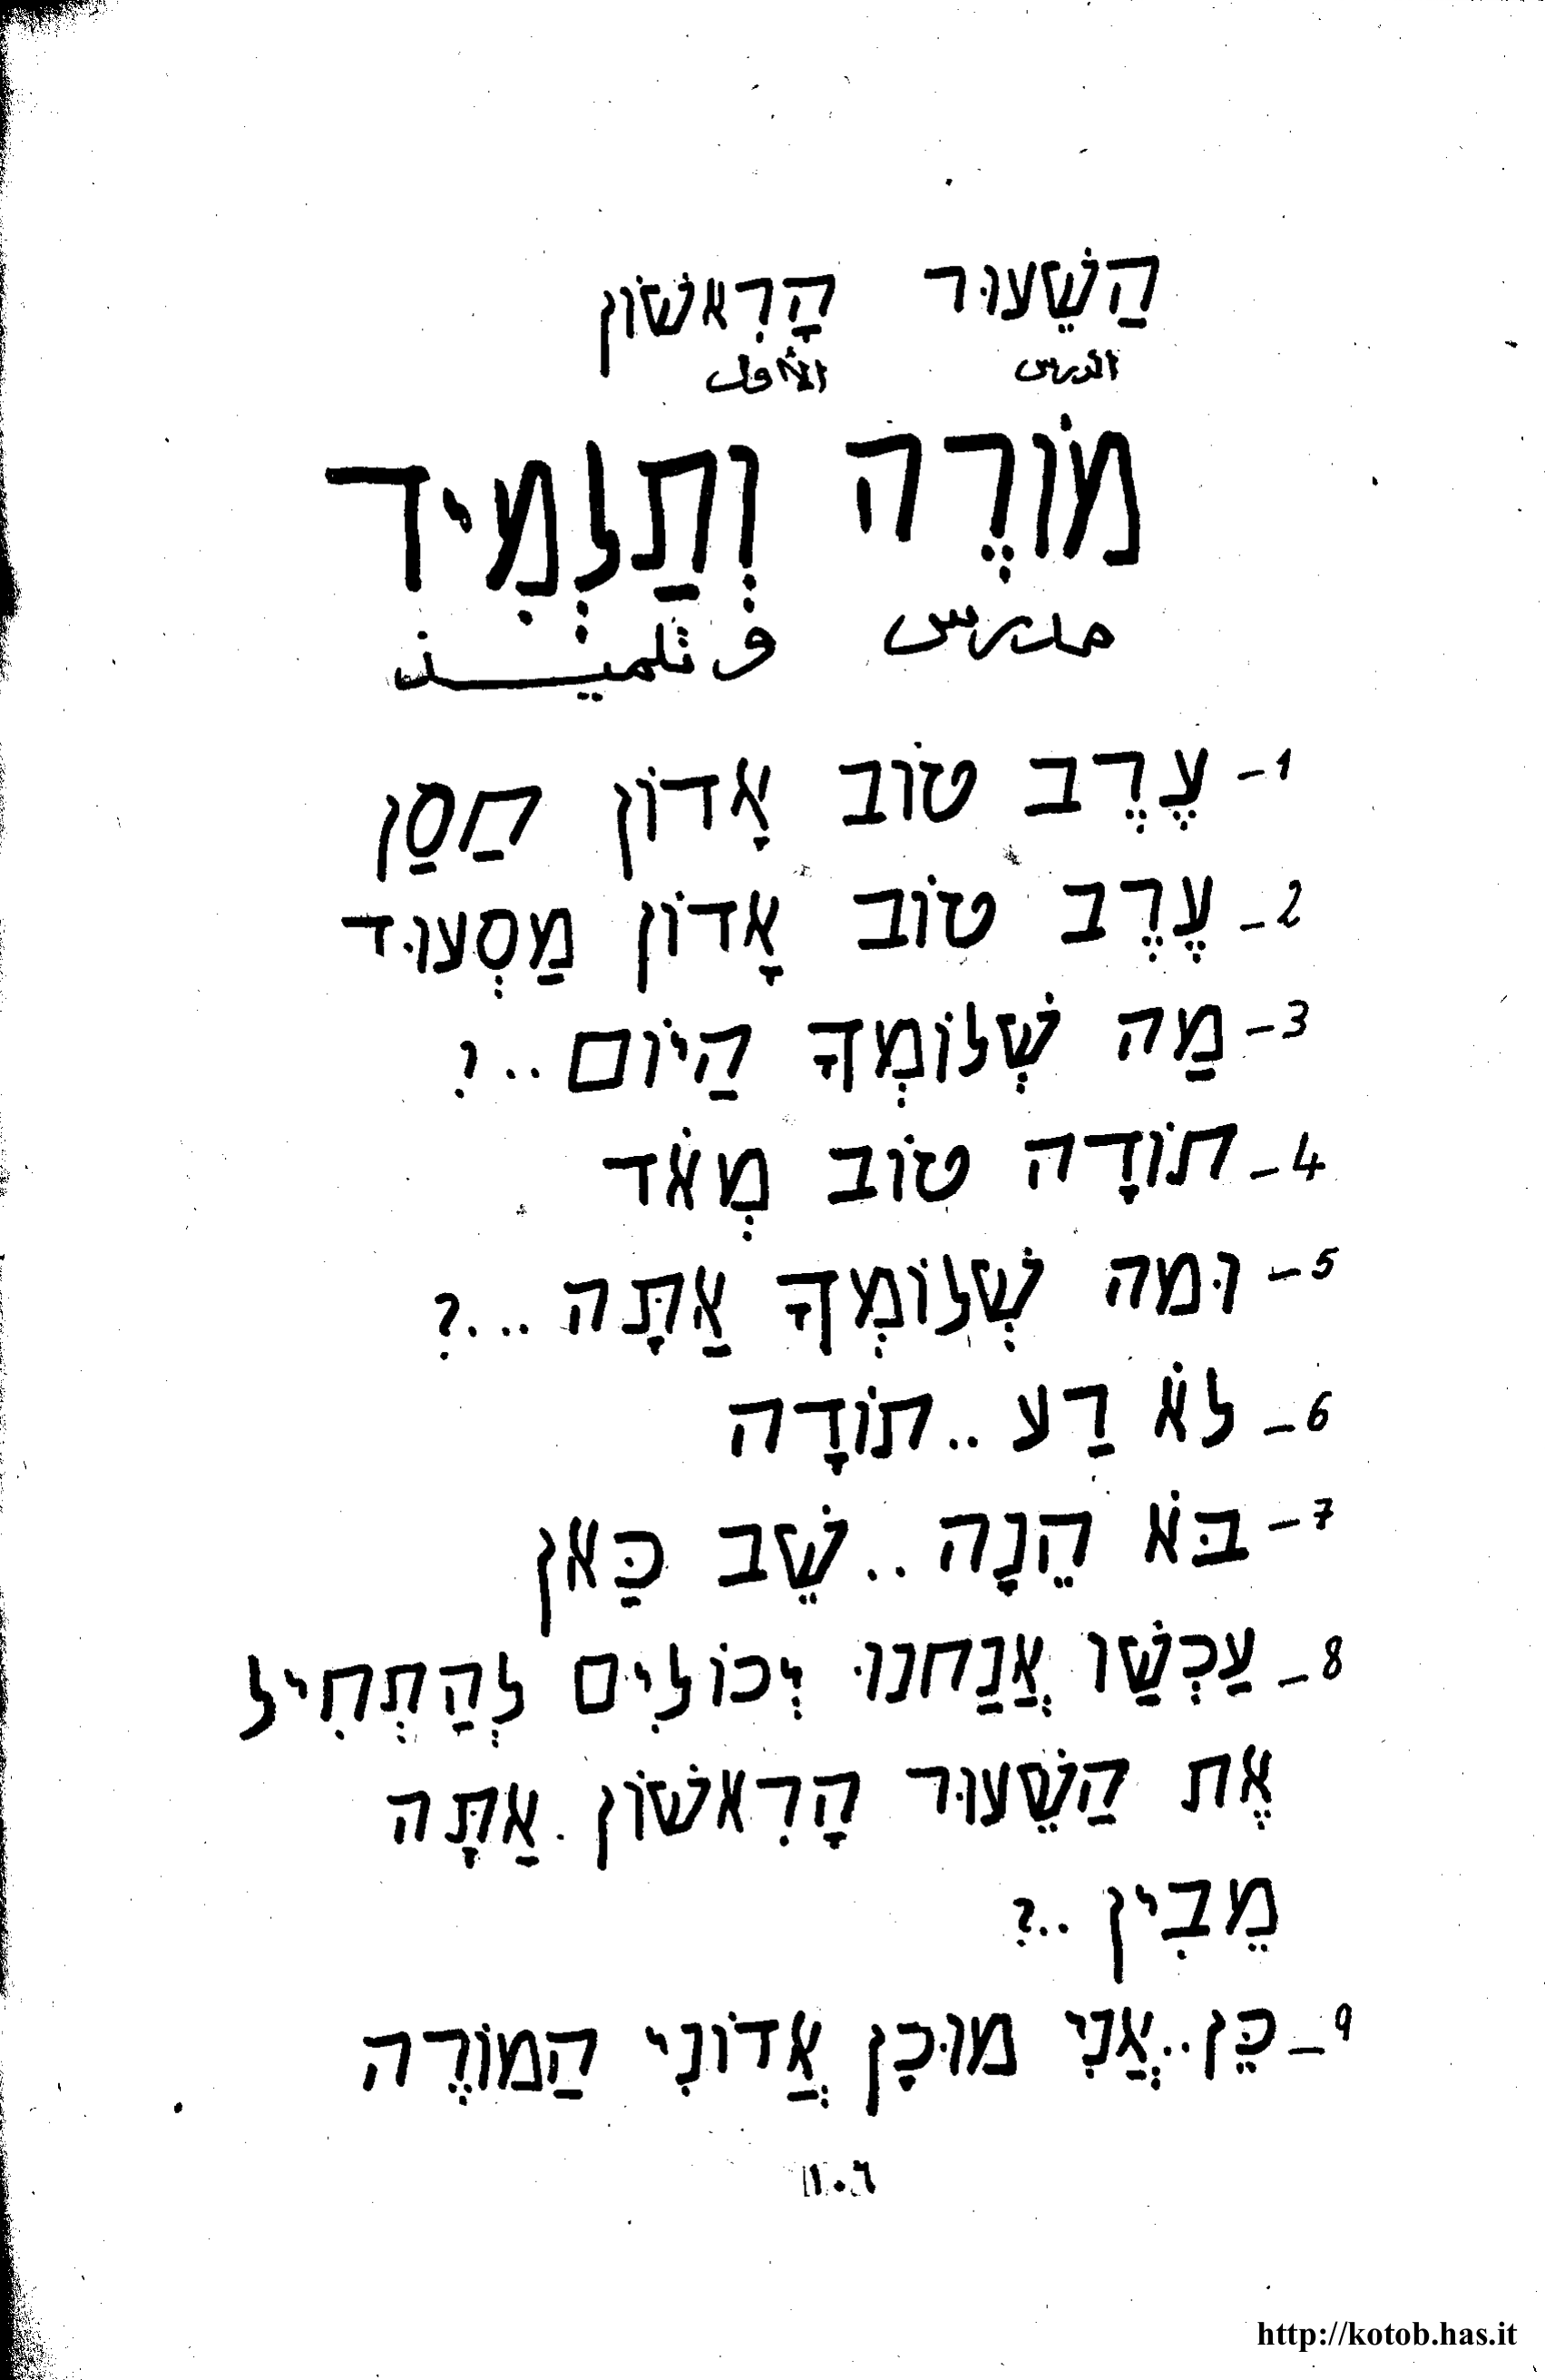 הַשֵּׁעוּר הָרִאשׁוֹן
الدرس الأول
מוֹרֶה וְתַלְמִיד
مدرس و تلميذ
1- עֶרֶב טוֹב אָדוֹן חַסַן
2- עֶרֶב טוֹב אָדוֹן מַסְעוּד
3- מַה שְׁלוֹמְךָ הַיוֹם..?
4- תוֹדָה טוֹב מְאֹד
5- וּמה שְׁלוֹמְךָ אַתָּה ...?
6- לֹא רַע ..תוֹדָה
7- בֹּא הֵנָה ..שֵׁב כַּאן
8- עַכְשַׁו אֲנַחנוּ יְכוֹלִים לְהַתְחִיל
אֶת הַשֵּׁעוּר הָרִאשׁוֹן . אַתָּה
מֵבִין ..?
9- כֵּן ..אֲנִי מוּכָן אֲדוֹנִי הַמוֹרֶה
http://kotob.has.it